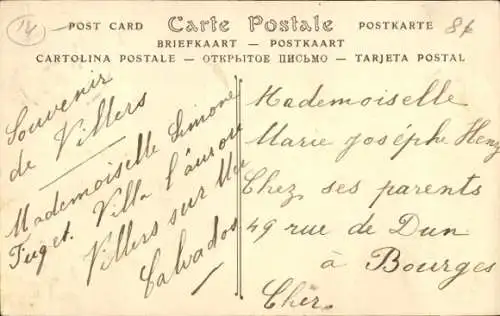 14
POST CARD
Carte Postale
POSTKARTE
8f
BRIEFKAART — POSTKAART
CARTOLINA POSTALE — ОТКРЫТОЕ ПИСЬМО — TARJETA POSTAL
Souvenir
de Villers
Mademoiselle Simone
Puget. Villa l'aurore
Villers sur Mer
Calvados
Mademoiselle
Marie Josèphe Henz
Chez ses parents
49 rue de Dun
à Bourges
Cher.